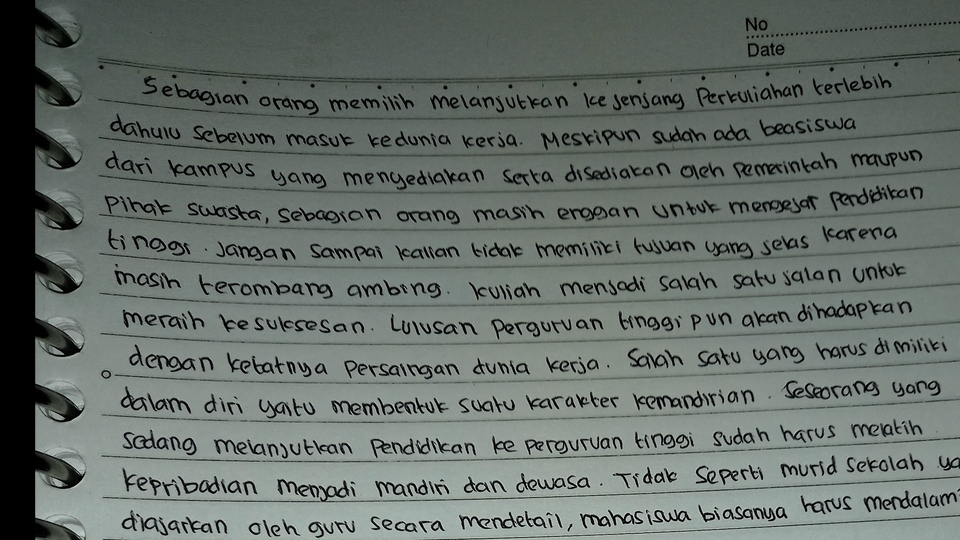 No
Date
Sebagian orang memilih melanjutkan ke jenjang Perkuliahan terlebih
dahulu sebelum masuk kedunia kerja. Meskipun sudah ada beasiswa
dari kampus yang menyediakan serta disediakan oleh pemerintah maupun
Pihak swasta, sebagian orang masih enggan untuk mengejar pendidikan
tinggi. Jangan sampai kalian tidak memiliki tujuan yang jelas karena
masih terombang ambing. Kuliah menjadi salah satu jalan untuk
meraih kesuksesan. Lulusan perguruan tinggi pun akan dihadapkan
dengan ketatnya persaingan dunia kerja. Salah satu yang harus dimiliki
dalam diri yaitu membentuk suatu karakter kemandirian. Seseorang yang
sedang melanjutkan Pendidikan ke perguruan tinggi sudah harus melatih
kepribadian menjadi mandiri dan dewasa. Tidak seperti murid sekolah ya
diajarkan oleh guru secara mendetail, mahasiswa biasanya harus mendalami